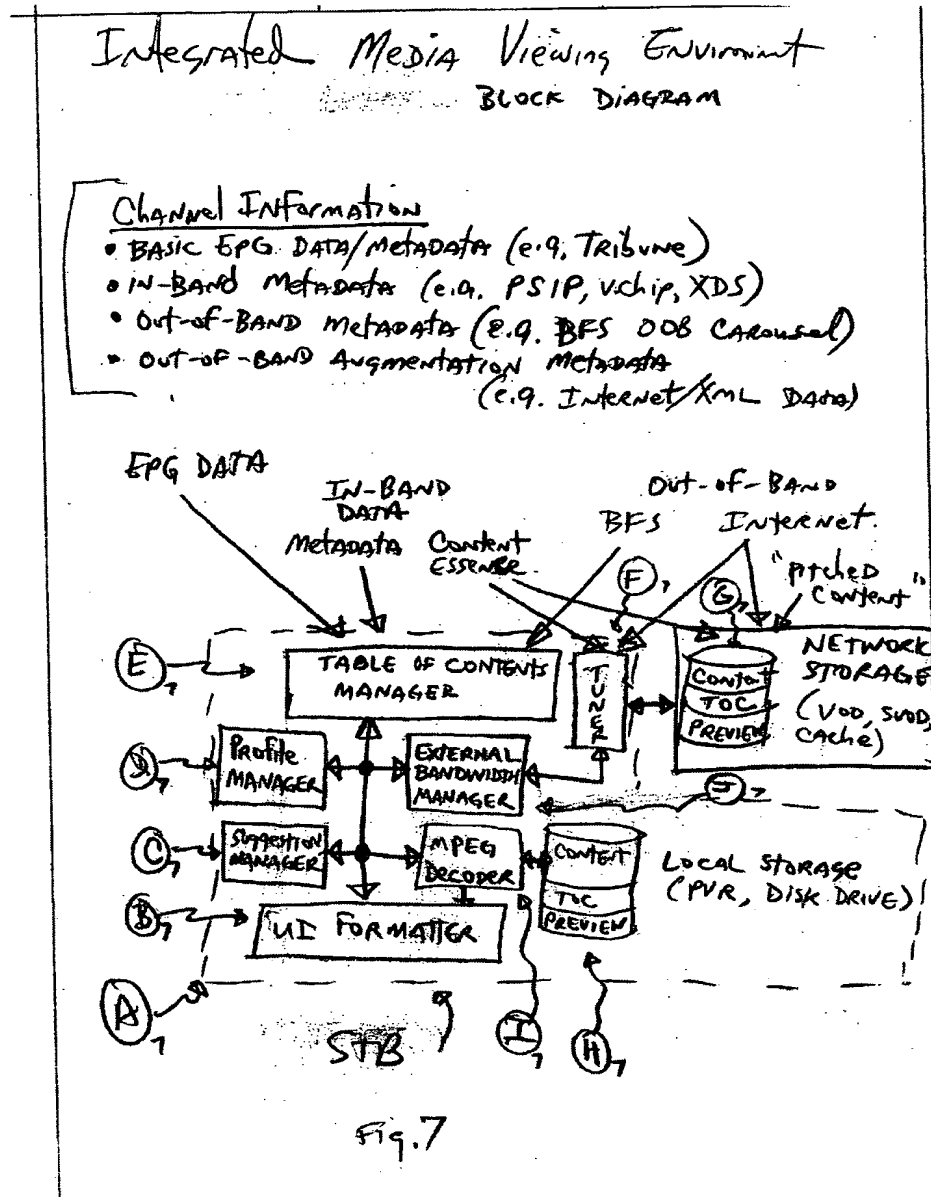 Integrated Media Viewing Environment
BLOCK DIAGRAM
Channel INFormation
• BASIC EPG DATA/Metadata (e.g, Tribune)
• IN-BAND Metadata (e.g. PSIP, V.chip, XDS)
• Out-of-BAND Metadata (e.g. BFS OOB Carousel)
• OUT-OF-BAND Augmentation Metadata
(e.g. Internet/XML Data)
EPG DATA
IN-BAND
DATA
Metadata
Content
Out-of-BAND
BFS
Internet.
"Pitched
Content"
F7
G7
E7
TABLE OF CONTENTS
MANAGER
TUNER
Content
TOC
PREVIEW
NETWORK
STORAGE
(VOD, SVOD,
CACHE)
D7
Profile
MANAGER
EXTERNAL
BANDWIDTH
MANAGER
J7
C7
Suggestion
MANAGER
MPEG
DECODER
Content
TOC
PREVIEW
LOCAL STORAGE
(PVR, DISK DRIVE)
B7
UI FORMATTER
A7
STB
I7
H7
Fig. 7